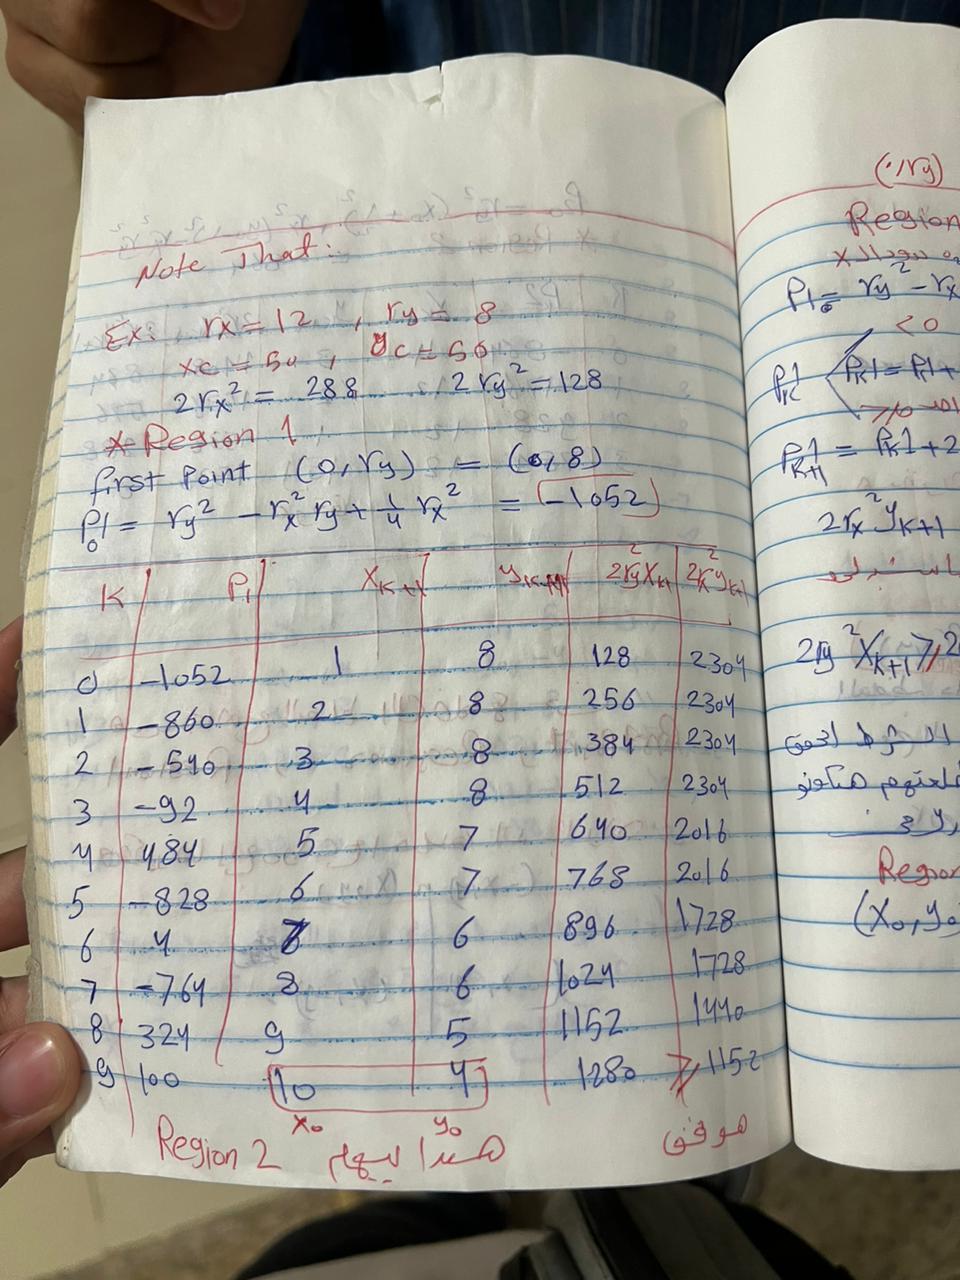 Note That:
Ex: rx = 12 , ry = 8
xc = 50 , yc = 50
2rx² = 288 2ry² = 128
* Region 1
first Point (0, ry) = (0, 8)
P1₀ = ry² - rx² ry + 1/4 rx² = -1052
K P1 Xₖ₊₁ yₖ₊₁ 2ry²Xₖ₊₁ 2rx²yₖ₊₁
0 -1052 1 8 128 2304
1 -860 2 8 256 2304
2 -540 3 8 384 2304
3 -92 4 8 512 2304
4 484 5 7 640 2016
5 -828 6 7 768 2016
6 4 7 6 896 1728
7 -764 8 6 1024 1728
8 324 9 5 1152 1440
9 100 10 4 1280 ≥ 1152
x₀ y₀
Region 2 هنبدأ بيهم
(0, ry)
Region
P1₀ = ry² - rx
< 0
Pₖ1 Pₖ1 = P1 +
P1ₖ₊₁ = Pₖ1 + 2
2rx² yₖ₊₁
2ry² Xₖ₊₁ ≥ 2
الشرط
Region
(X₀, y₀